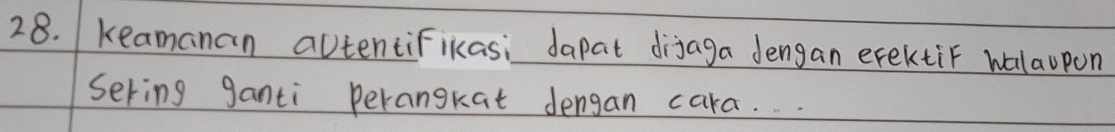 28. Keamanan autentifikasi dapat dijaga dengan efektif walaupun
Sering ganti perangkat dengan cara....